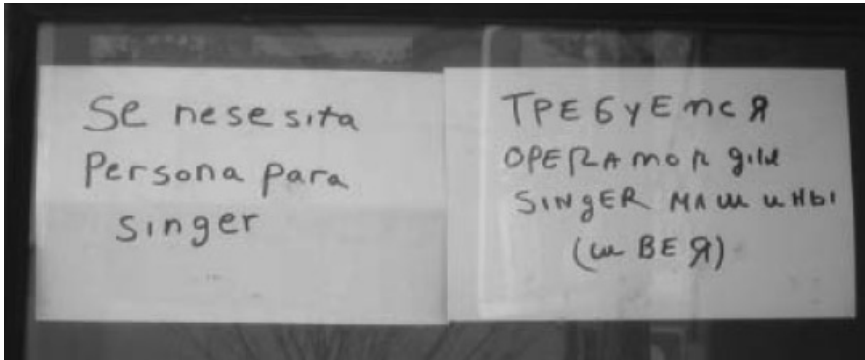 Se nesesita
Persona para
singer
ТРЕБУЕТСЯ
ОPERAТОR ДЛЯ
SINGER МАШИНЫ
(ШВЕЯ)